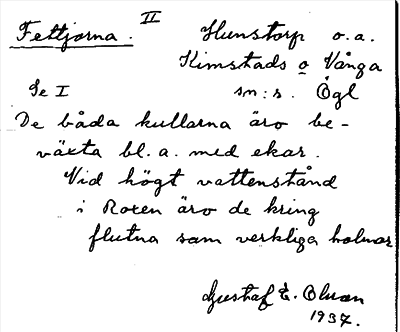 Fettjorna. II Hunstorp o.a.
Kimstads o Vånga
Se I sn:s. Ögl
De båda kullarna äro be-
växta bl. a. med ekar.
Vid högt vattenstånd
i Roxen äro de kring
flutna som verkliga holmar
Gustaf E. Olsson
1937.